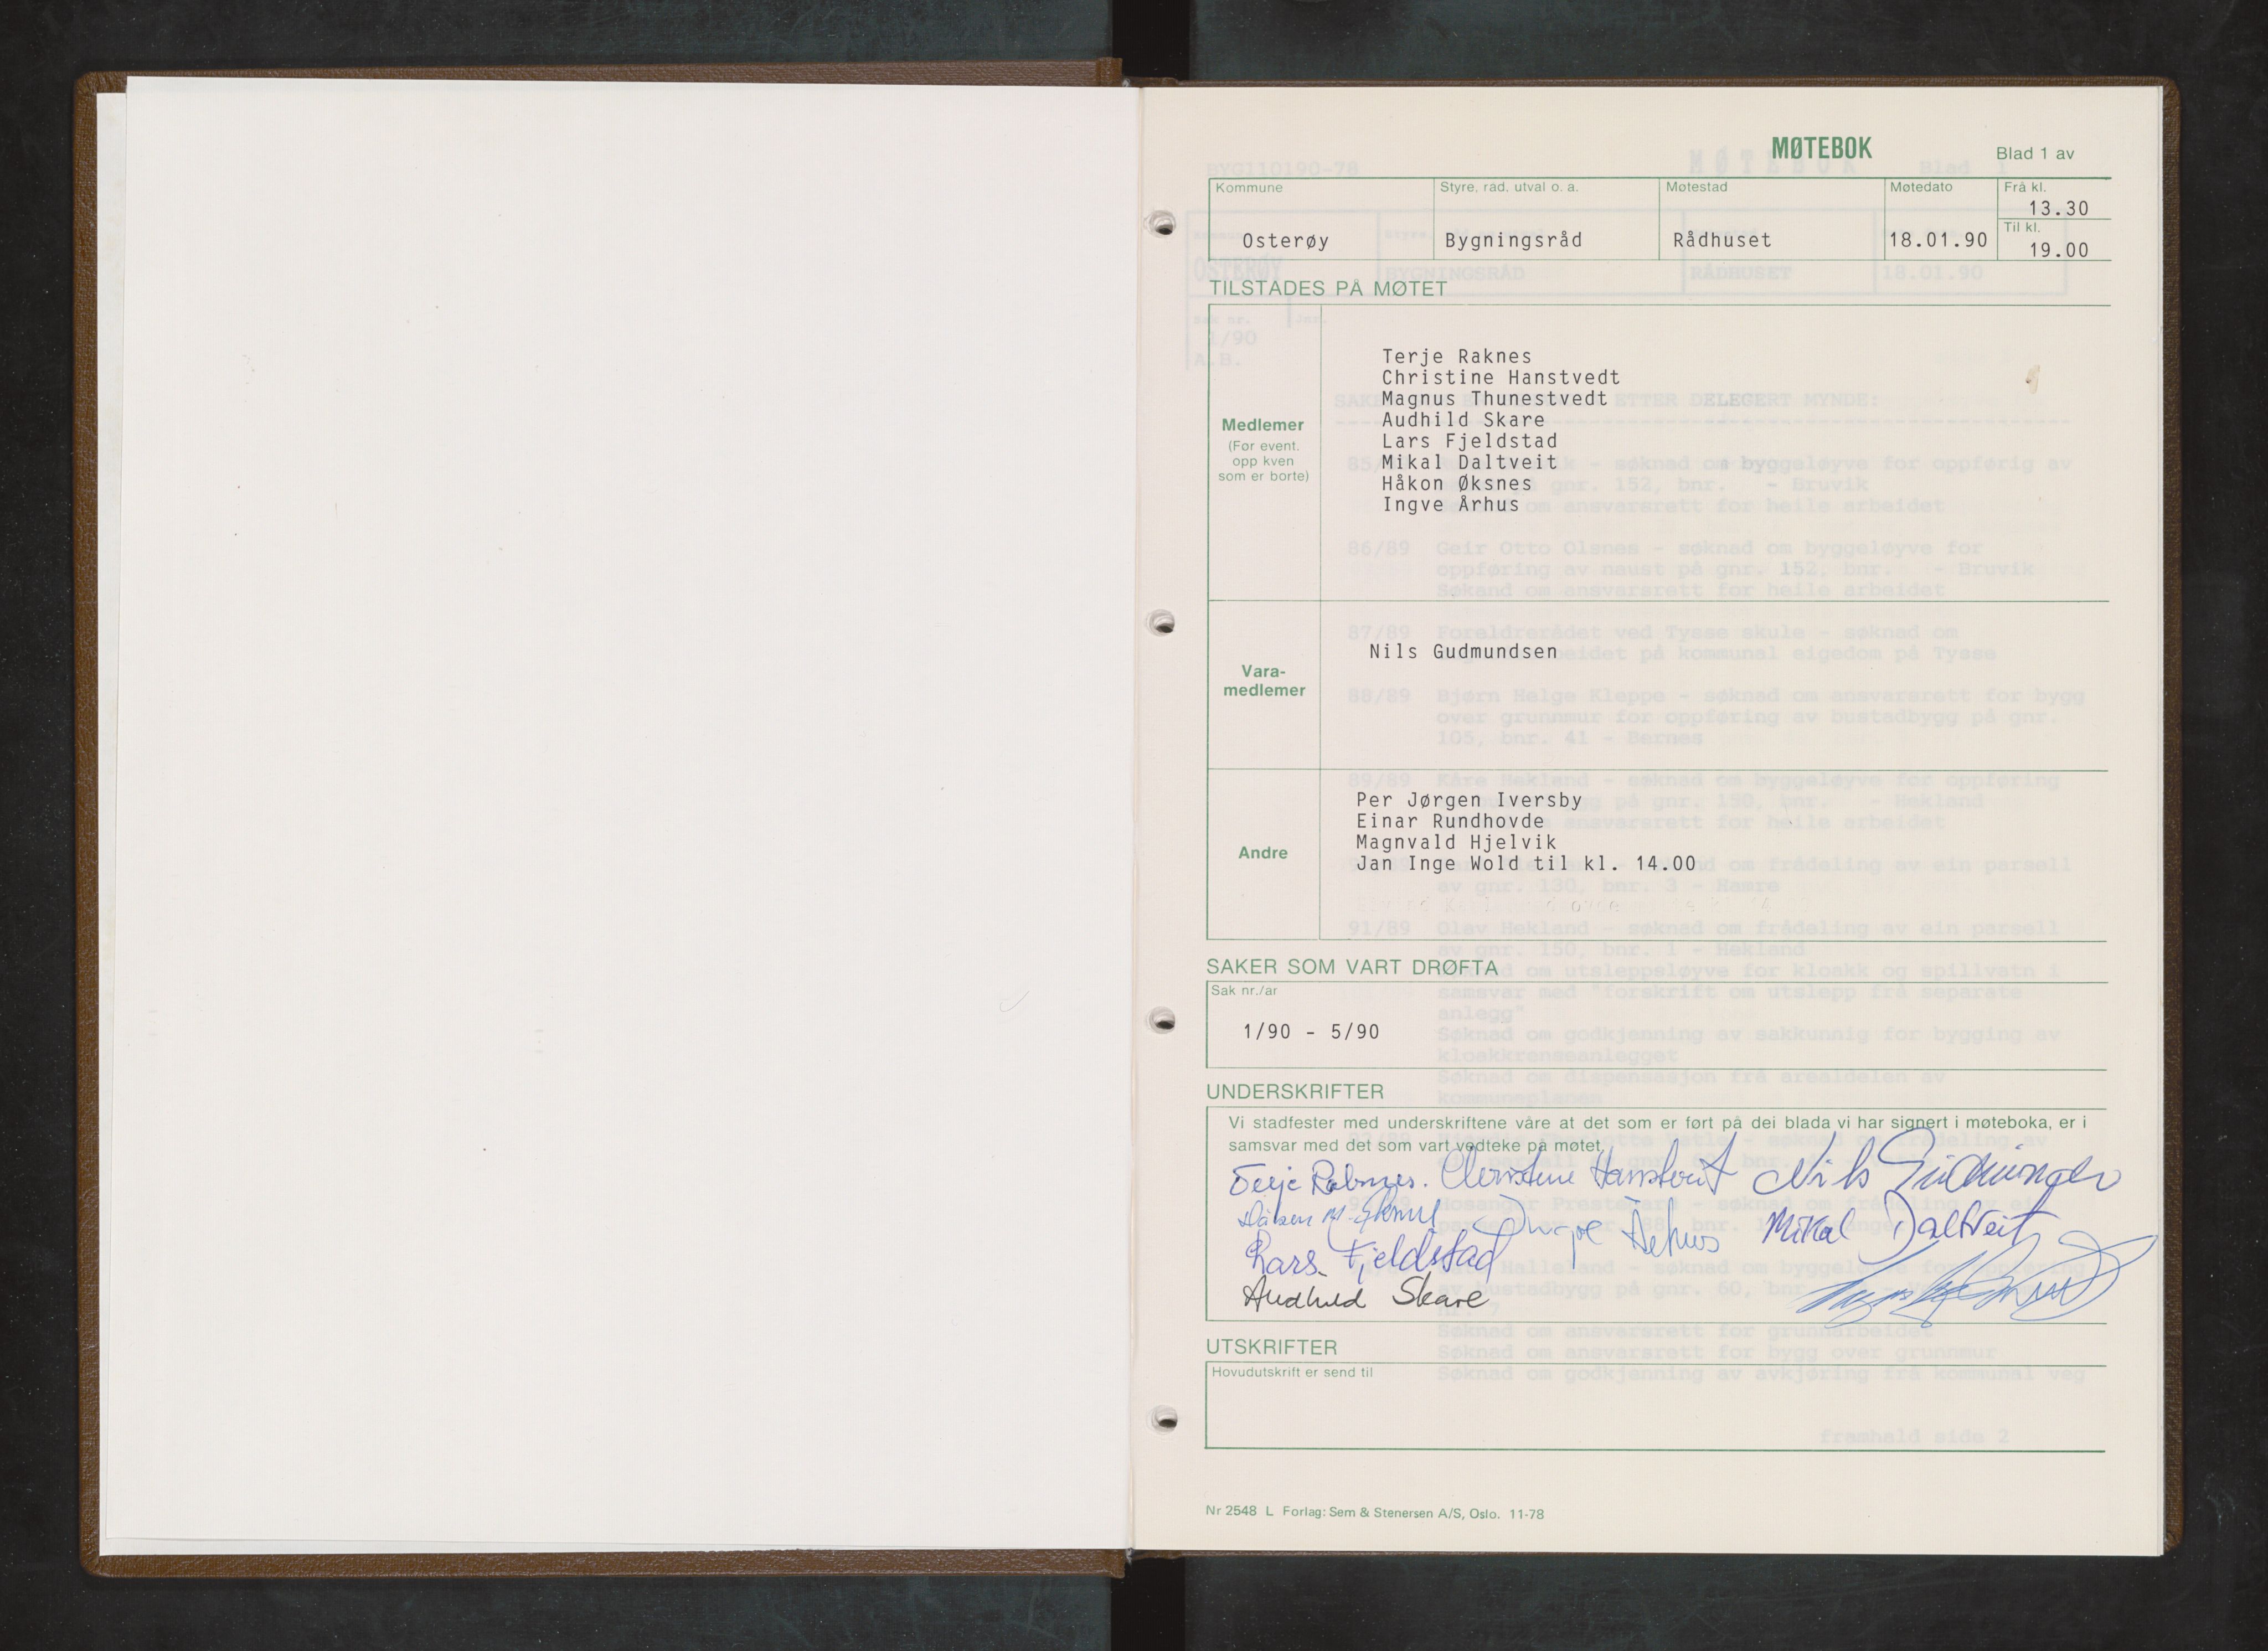 MØTEBOK
Blad 1 av
Kommune
Styre, råd, utval o. a.
Møtestad
Møtedato
Frå kl.
13.30
Osterøy
Bygningsråd
Rådhuset
18.01.90
Til kl.
19.00
TILSTADES PÅ MØTET
Medlemer
(Før event.
opp kven
som er borte)
Terje Raknes
Christine Hanstvedt
Magnus Thunestvedt
Audhild Skare
Lars Fjeldstad
Mikal Daltveit
Håkon Øksnes
Ingve Århus
Vara-
medlemer
Nils Gudmundsen
Andre
Per Jørgen Iversby
Einar Rundhovde
Magnvald Hjelvik
Jan Inge Wold til kl. 14.00
SAKER SOM VART DRØFTA
Sak nr./år
1/90 - 5/90
UNDERSKRIFTER
Vi stadfester med underskriftene våre at det som er ført på dei blada vi har signert i møteboka, er i
samsvar med det som vart vedteke på møtet.
Terje Raknes. Christine Hanstveit Nils Gudmundsen
Ingve Århus Mikal Daltveit
Lars Fjeldstad
Audhild Skare
UTSKRIFTER
Hovudutskrift er send til
Nr 2548 L Forlag: Sem & Stenersen A/S, Oslo. 11-78